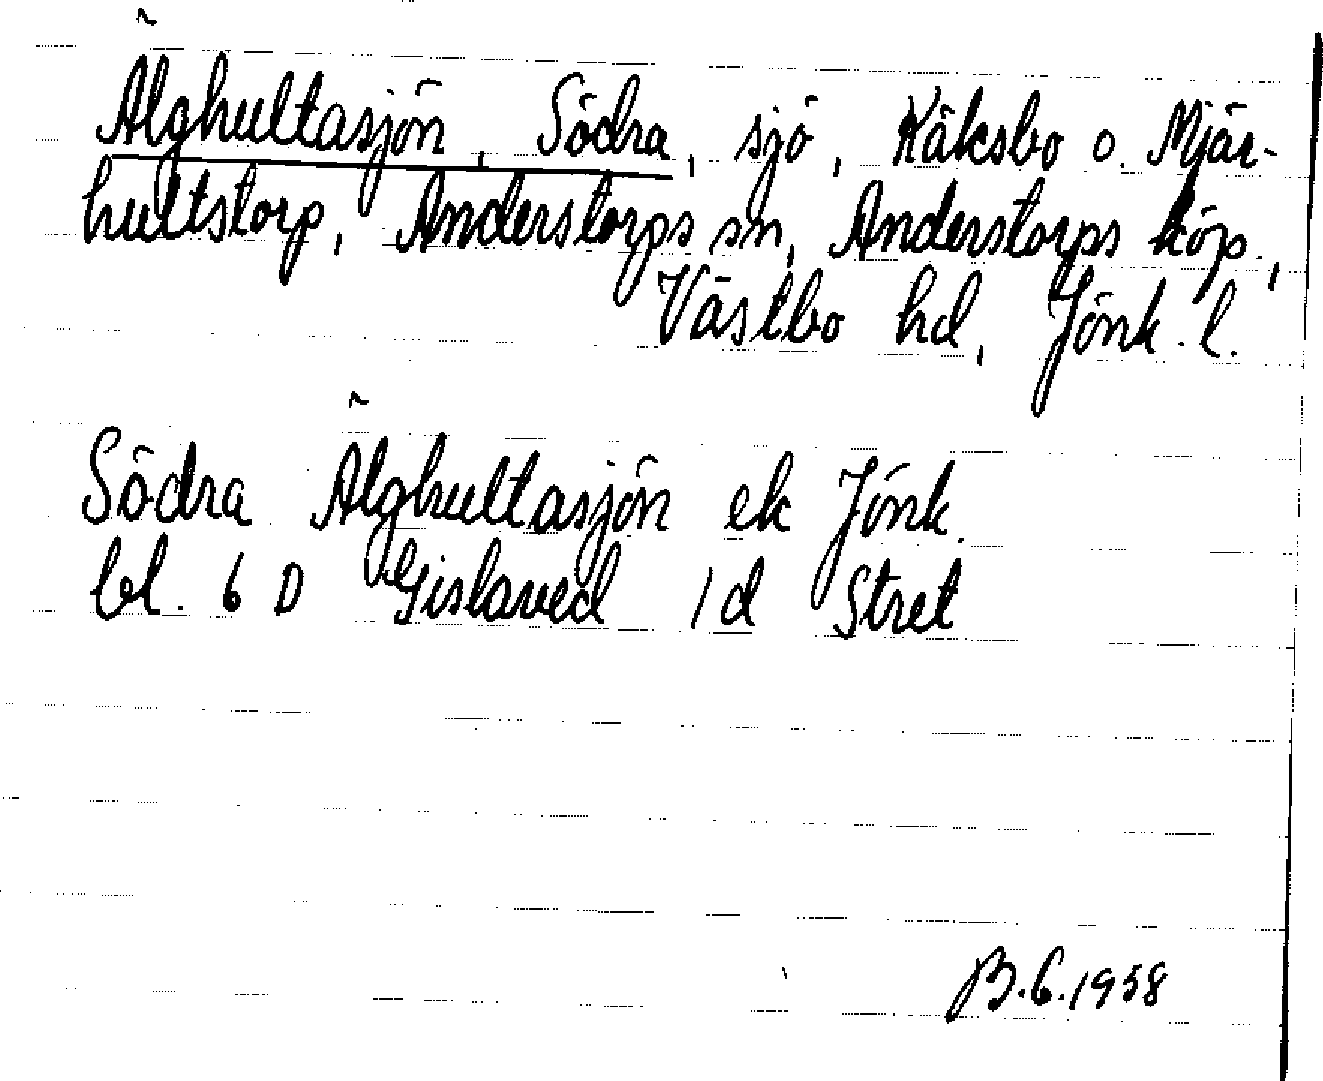 Älghultasjön, Södra, sjö, Käksbo o. Mjär-
hultstorp, Anderstorps sn, Anderstorps köp.,
Västbo hd, Jönk. l.
Södra Älghultasjön ek Jönk.
bl. 6 D Gislaved 1 d Stret
B.G.1958